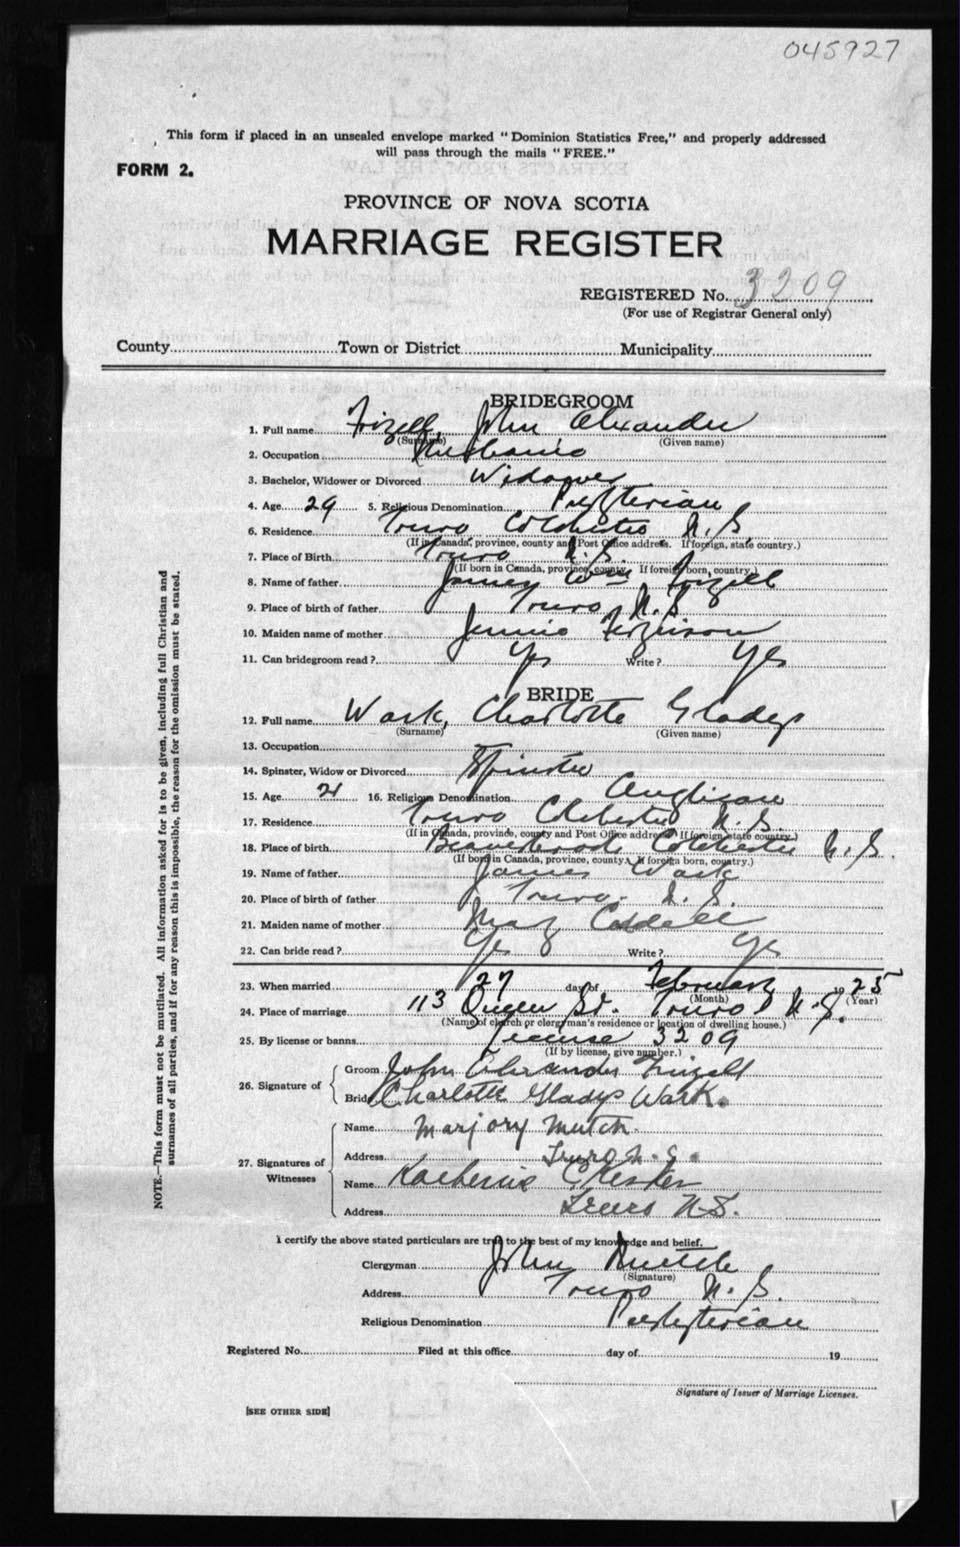 045927
This form if placed in an unsealed envelope marked "Dominion Statistics Free," and properly addressed
will pass through the mails "FREE."
FORM 2.
PROVINCE OF NOVA SCOTIA
MARRIAGE REGISTER
REGISTERED No. 3209
(For use of Registrar General only)
County Town or District Municipality
BRIDEGROOM
1. Full name Frizell, John Alexander
(Surname) (Given name)
2. Occupation
3. Bachelor, Widower or Divorced Widower
4. Age 29 5. Religious Denomination Presbyterian
6. Residence Truro Colchester N.S.
(If in Canada, province, county and Post Office address. If foreign, state, country.)
7. Place of Birth Truro N.S.
(If born in Canada, province, county. If foreign born, country.)
8. Name of father James Wm Frizell
9. Place of birth of father Truro, N.S.
10. Maiden name of mother Jennie Ferguson
11. Can bridegroom read? Yes Write? Yes
BRIDE
12. Full name Wark, Charlotte Gladys
(Surname) (Given name)
13. Occupation
14. Spinster, Widow or Divorced Spinster
15. Age 21 16. Religious Denomination Anglican
17. Residence Truro Colchester N.S.
(If in Canada, province, county and Post Office address. If foreign, state country.)
18. Place of birth Beaverbrook Colchester N.S.
(If born in Canada, province, county. If foreign born, country.)
19. Name of father James Wark
20. Place of birth of father Truro, N.S.
21. Maiden name of mother May
22. Can bride read? Yes Write? Yes
23. When married 27 day of February 1925
(Month) (Year)
24. Place of marriage 113 Queen St. Truro N.S.
(Name of church or clergyman's residence or location of dwelling house.)
25. By license or banns License 3209
(If by license, give number.)
26. Signature of
Groom John Alexander Frizell
Bride Charlotte Gladys Wark.
27. Signatures of
Witnesses
Name Marjory Mutch.
Address Truro N.S.
Name Katherine
Address Truro N.S.
I certify the above stated particulars are true to the best of my knowledge and belief.
Clergyman John Mutch
(Signature)
Address Truro N.S.
Religious Denomination Presbyterian
Registered No. Filed at this office day of 19
Signature of Issuer of Marriage Licenses.
[SEE OTHER SIDE]
NOTE.—This form must not be mutilated. All information asked for is to be given, including full Christian and
surnames of all parties, and if for any reason this is impossible, the reason for the omission must be stated.